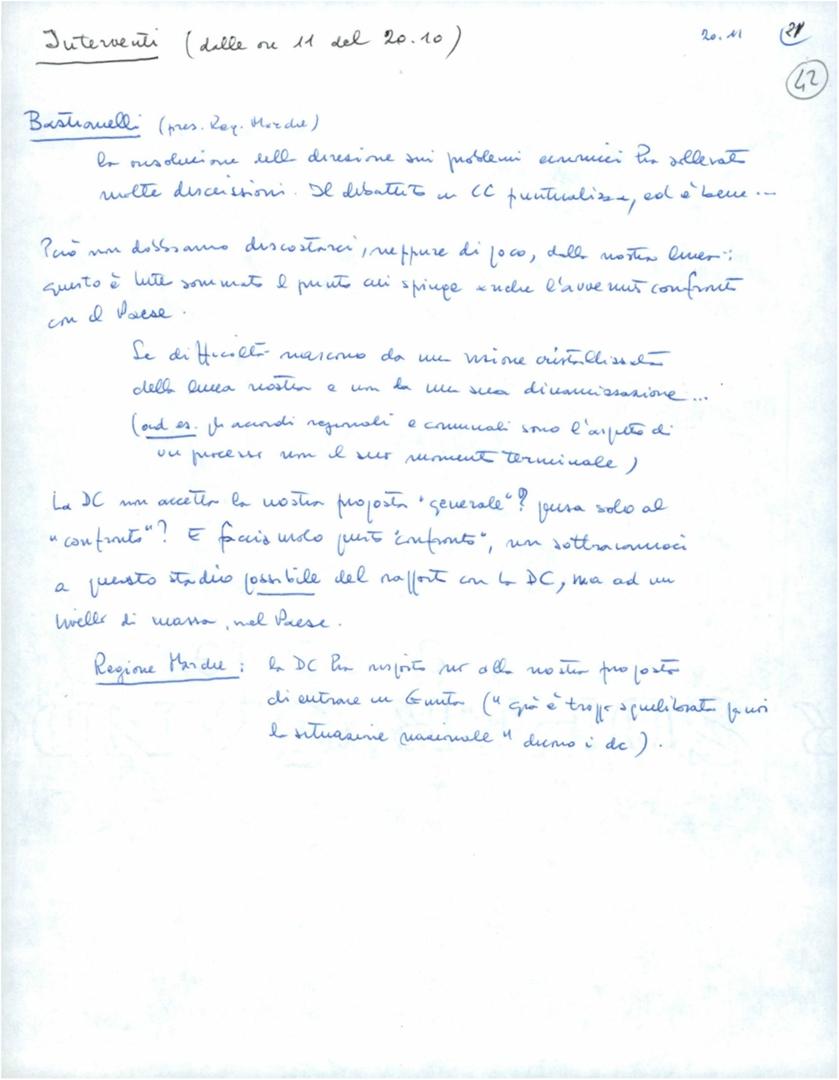 Interventi (dalle ore 11 del 20.10)
20.11
21
42
Bastianelli (pres. Reg. Marche)
La risoluzione della direzione sui problemi economici ha sollevato
molte discussioni. Il dibattito in CC puntualizza, ed è bene...
Però non dobbiamo discostarci, neppure di poco, dalla nostra linea:
questo è tutto sommato il punto cui spinge anche l'avvenuto confronto
con il Paese.
Le difficoltà nascono da una visione cristallizzata
della linea nostra e non da una sua dinamizzazione...
(ad es. gli accordi regionali e comunali sono l'aspetto di
un processo non il suo momento terminale)
La DC non accetta la nostra proposta "generale"? pensa solo al
"confronto"? E facciamolo questo "confronto", non sottraiamoci
a questo stadio possibile del rapporto con la DC, ma ad un
livello di massa, nel Paese.
Regione Marche: la DC ha risposto no alla nostra proposta
di entrare in Giunta ("già è troppo squilibrata
la situazione nazionale" dicono i dc).